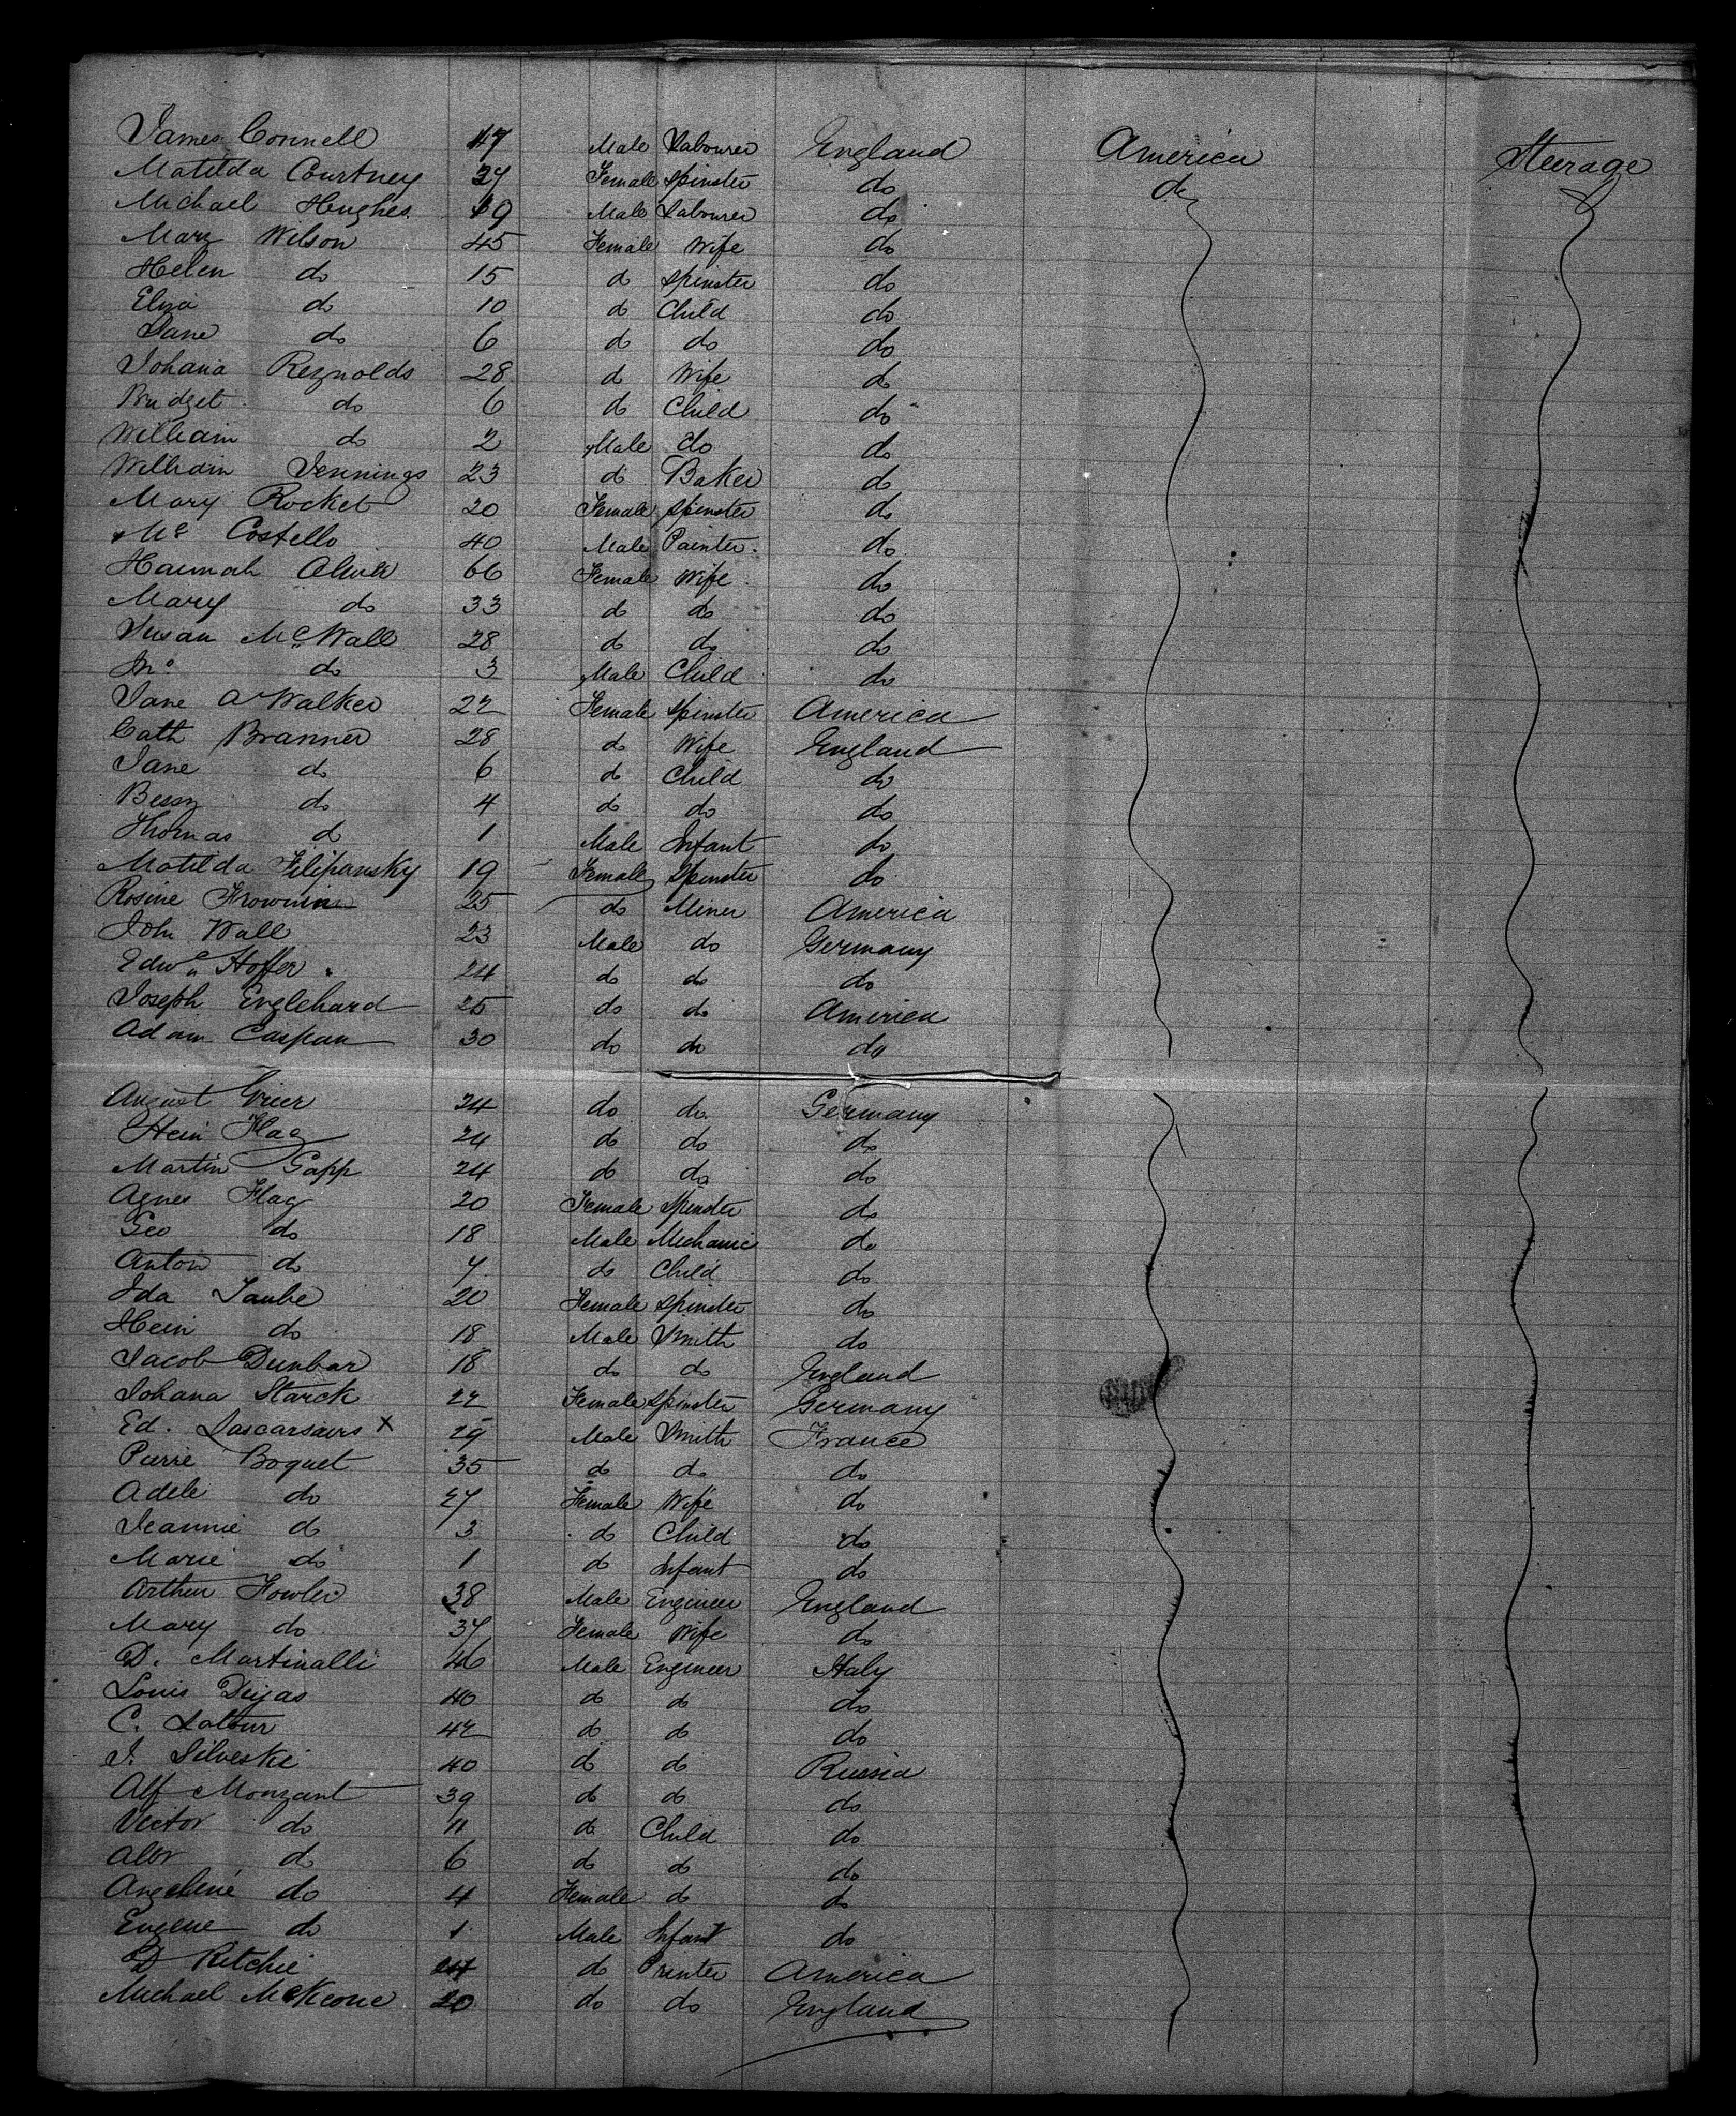 James Connell 47 Male Labourer England America Steerage
Matilda Courtney 27 Female Spinster do do
Michael Hughes 19 Male Labourer do
Mary Wilson 45 Female Wife do
Helen do 15 d Spinster do
Eliza do 10 do Child do
Jane do 6 d do do
Johana Reynolds 28 d Wife do
Bridget do 6 do Child do
William do 2 Male do do
William Jennings 23 d Baker do
Mary Rocket 20 Female Spinster do
Mc Costello 40 Male Painter do
Hannah 66 Female Wife do
Mary do 33 d do do
Susan McWall 28 d do do
Jno do 3 Male Child do
Jane A Walker 22 Female Spinster America
Cath Branner 28 d Wife England
Jane do 6 d Child do
Bessy do 4 do do do
Thomas d 1 Male Infant do
Matilda Filipansky 19 Female Spinster do
Rosine 25 do Miner America
John Wall 23 Male do Germany
Edwd Hoffer 24 do do do
Joseph Englehard 25 do do America
Adam Caspan 30 do do do
August Grier 24 do do Germany
Hein Flag 24 do do do
Martin Gapp 24 do do do
Agnes Flag 20 Female Spinster do
Geo do 18 Male Mechanic do
Anton do 7 do Child do
Ida Taube 20 Female Spinster do
Hein do 18 Male Smith do
Jacob Dunbar 18 do do England
Johana Starck 22 Female Spinster Germany
Ed. X 29 Male Smith France
Pierre Boquet 35 do do do
Adele do 27 Female Wife do
Jeannie d 3 d Child do
Marie do 1 d Infant do
Arthur Fowler 38 Male Engineer England
Mary do 37 Female Wife do
D. Martinalli 46 Male Engineer Italy
Louis Dejas 40 d do do
C. Latour 42 d do do
J. Silveski 40 d do Russia
Alf Monzant 39 d do do
Victor do 11 d Child do
d 6 d d do
Angeline do 4 Female d do
Eugene do 1 Male Infant do
D Ritchie 24 d Printer America
Michael McKeone 20 do do England